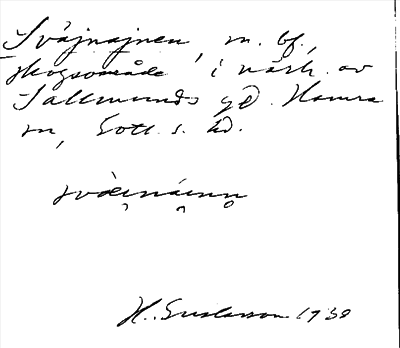 Sväjnajnen, m. bf,
skogsområde i närh. av
Sallmunds gd. Hamra
sn, Gotl. s. hd.
H. Gustavson 1938